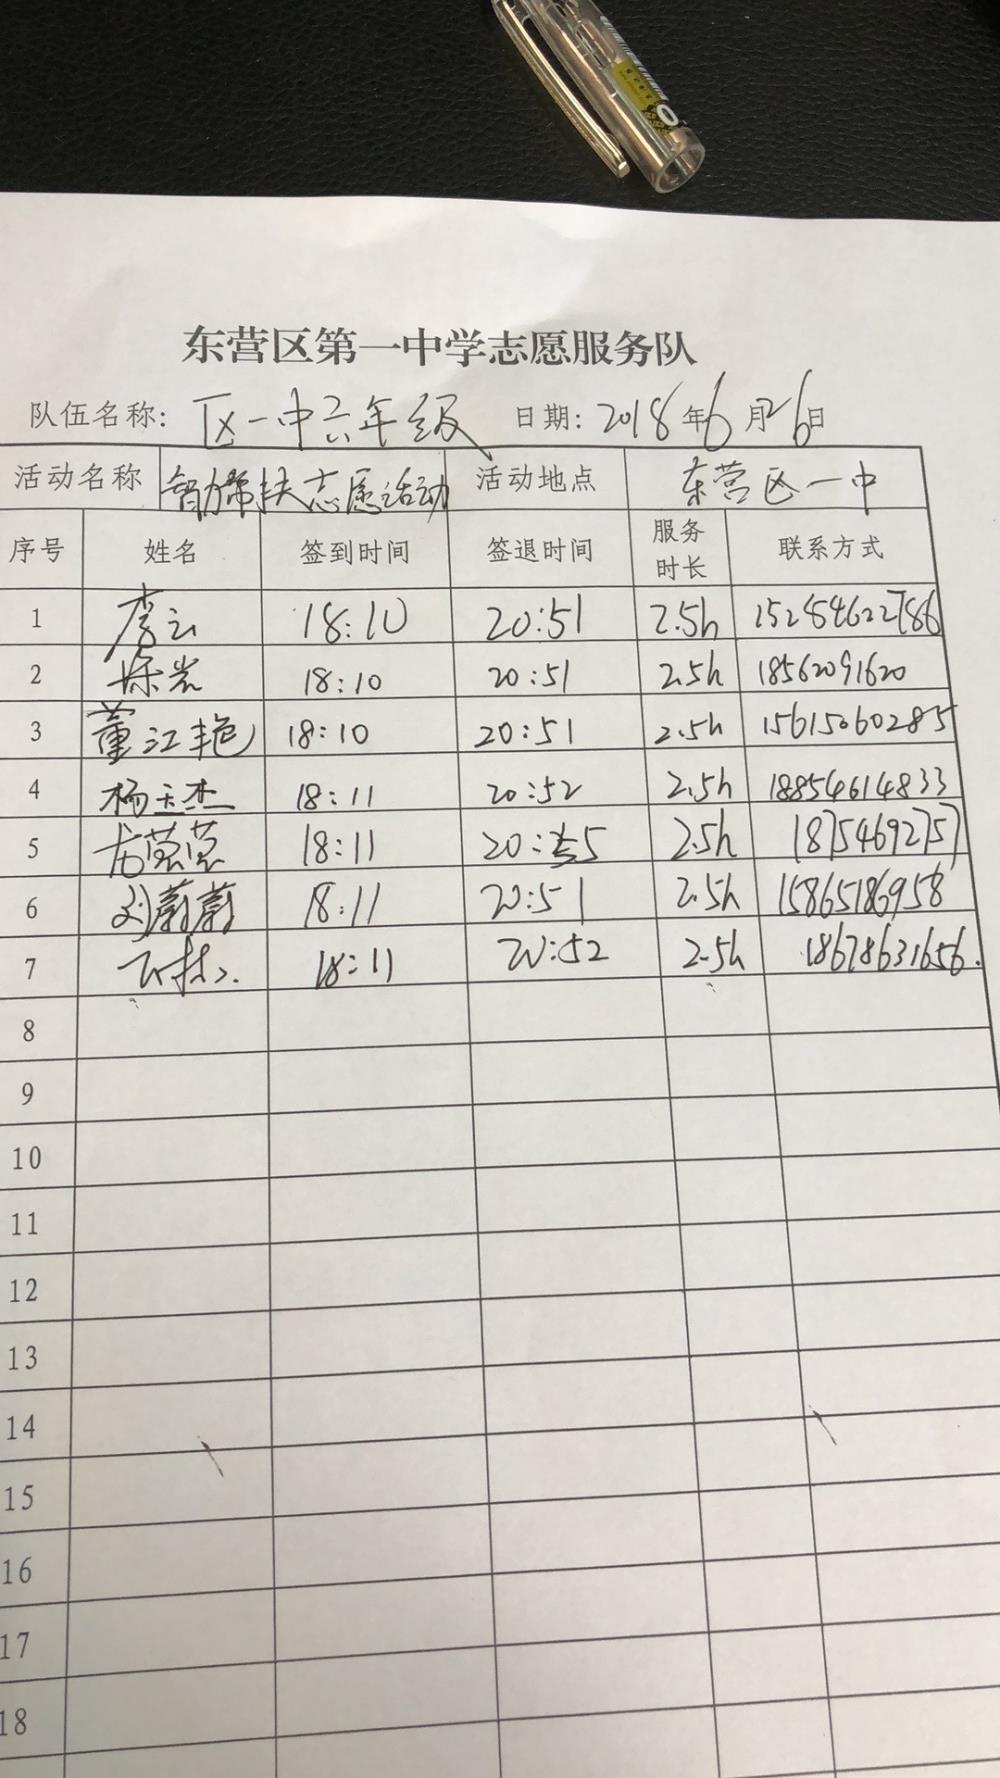 东营区第一中学志愿服务队
队伍名称: 区一中六年级 日期: 2018年6月26日
活动名称 智力帮扶志愿活动 活动地点 东营区一中
序号 姓名 签到时间 签退时间 服务时长 联系方式
1 李云 18:10 20:51 2.5h 15254622786
2 徐岩 18:10 20:51 2.5h 18562091620
3 董江艳 18:10 20:51 2.5h 15615060285
4 杨玉杰 18:11 20:52 2.5h 18854614833
5 尤莹莹 18:11 2.5h 18754692757
6 刘蔚蔚 18:11 20:51 2.5h 15865186958
7 18:11 20:52 2.5h 18678631656.
8
9
10
11
12
13
14
15
16
17
18